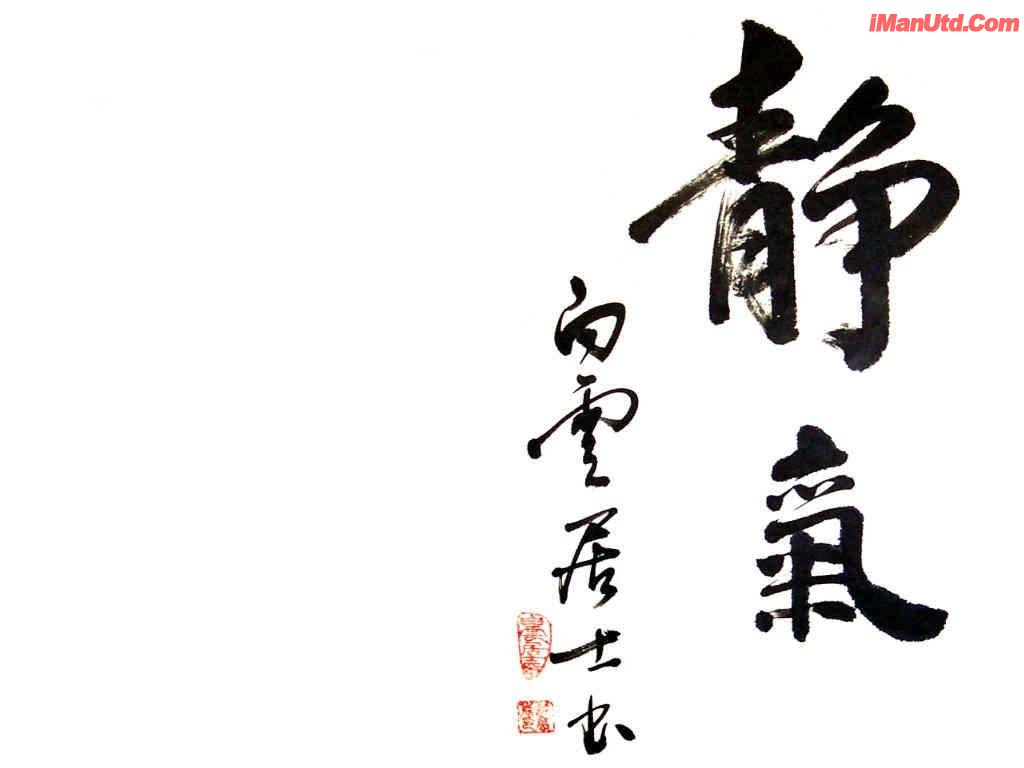 iManUtd.Com
靜氣
白雲居士书